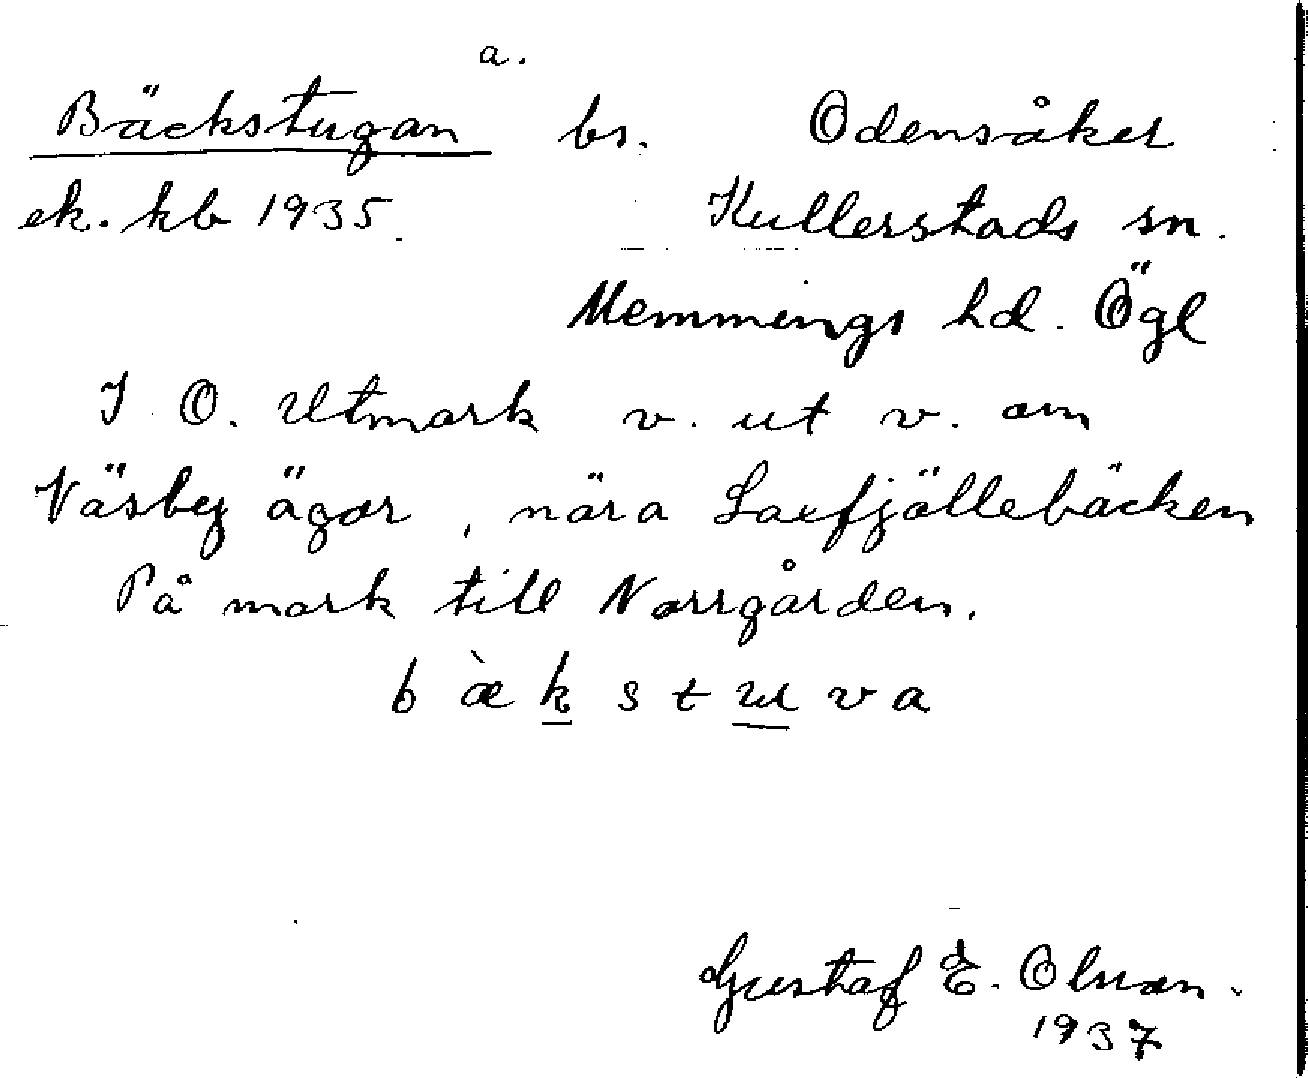 a.
Bäckstugan bs. Odensåker
ek. kb 1935. Kullerstads sn.
Memmings hd. Ögl
I O. Utmark v. ut v. om
Väsby ägor, nära Laxfjällebäcken
På mark till Norrgården.
b æ̀ k s t u v a
Gustaf E. Olsson.
1937